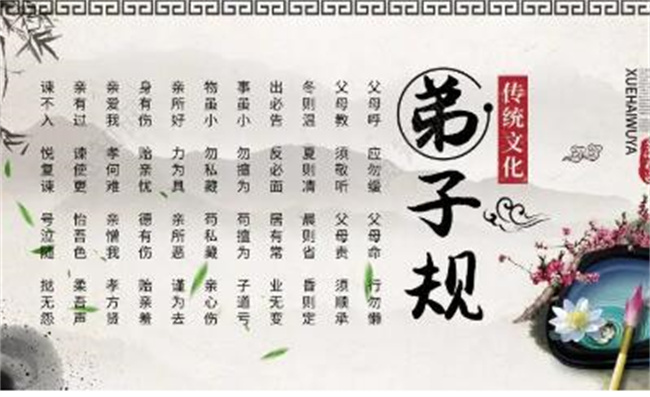 XUEHAIWUYA
传统文化
弟子规
父母呼 应勿缓 父母命 行勿懒
父母教 须敬听 父母责 须顺承
冬则温 夏则凊 晨则省 昏则定
出必告 反必面 居有常 业无变
事虽小 勿擅为 苟擅为 子道亏
物虽小 勿私藏 苟私藏 亲心伤
亲所好 力为具 亲所恶 谨为去
身有伤 贻亲忧 德有伤 贻亲羞
亲爱我 孝何难 亲憎我 孝方贤
亲有过 谏使更 怡吾色 柔吾声
谏不入 悦复谏 号泣随 挞无怨